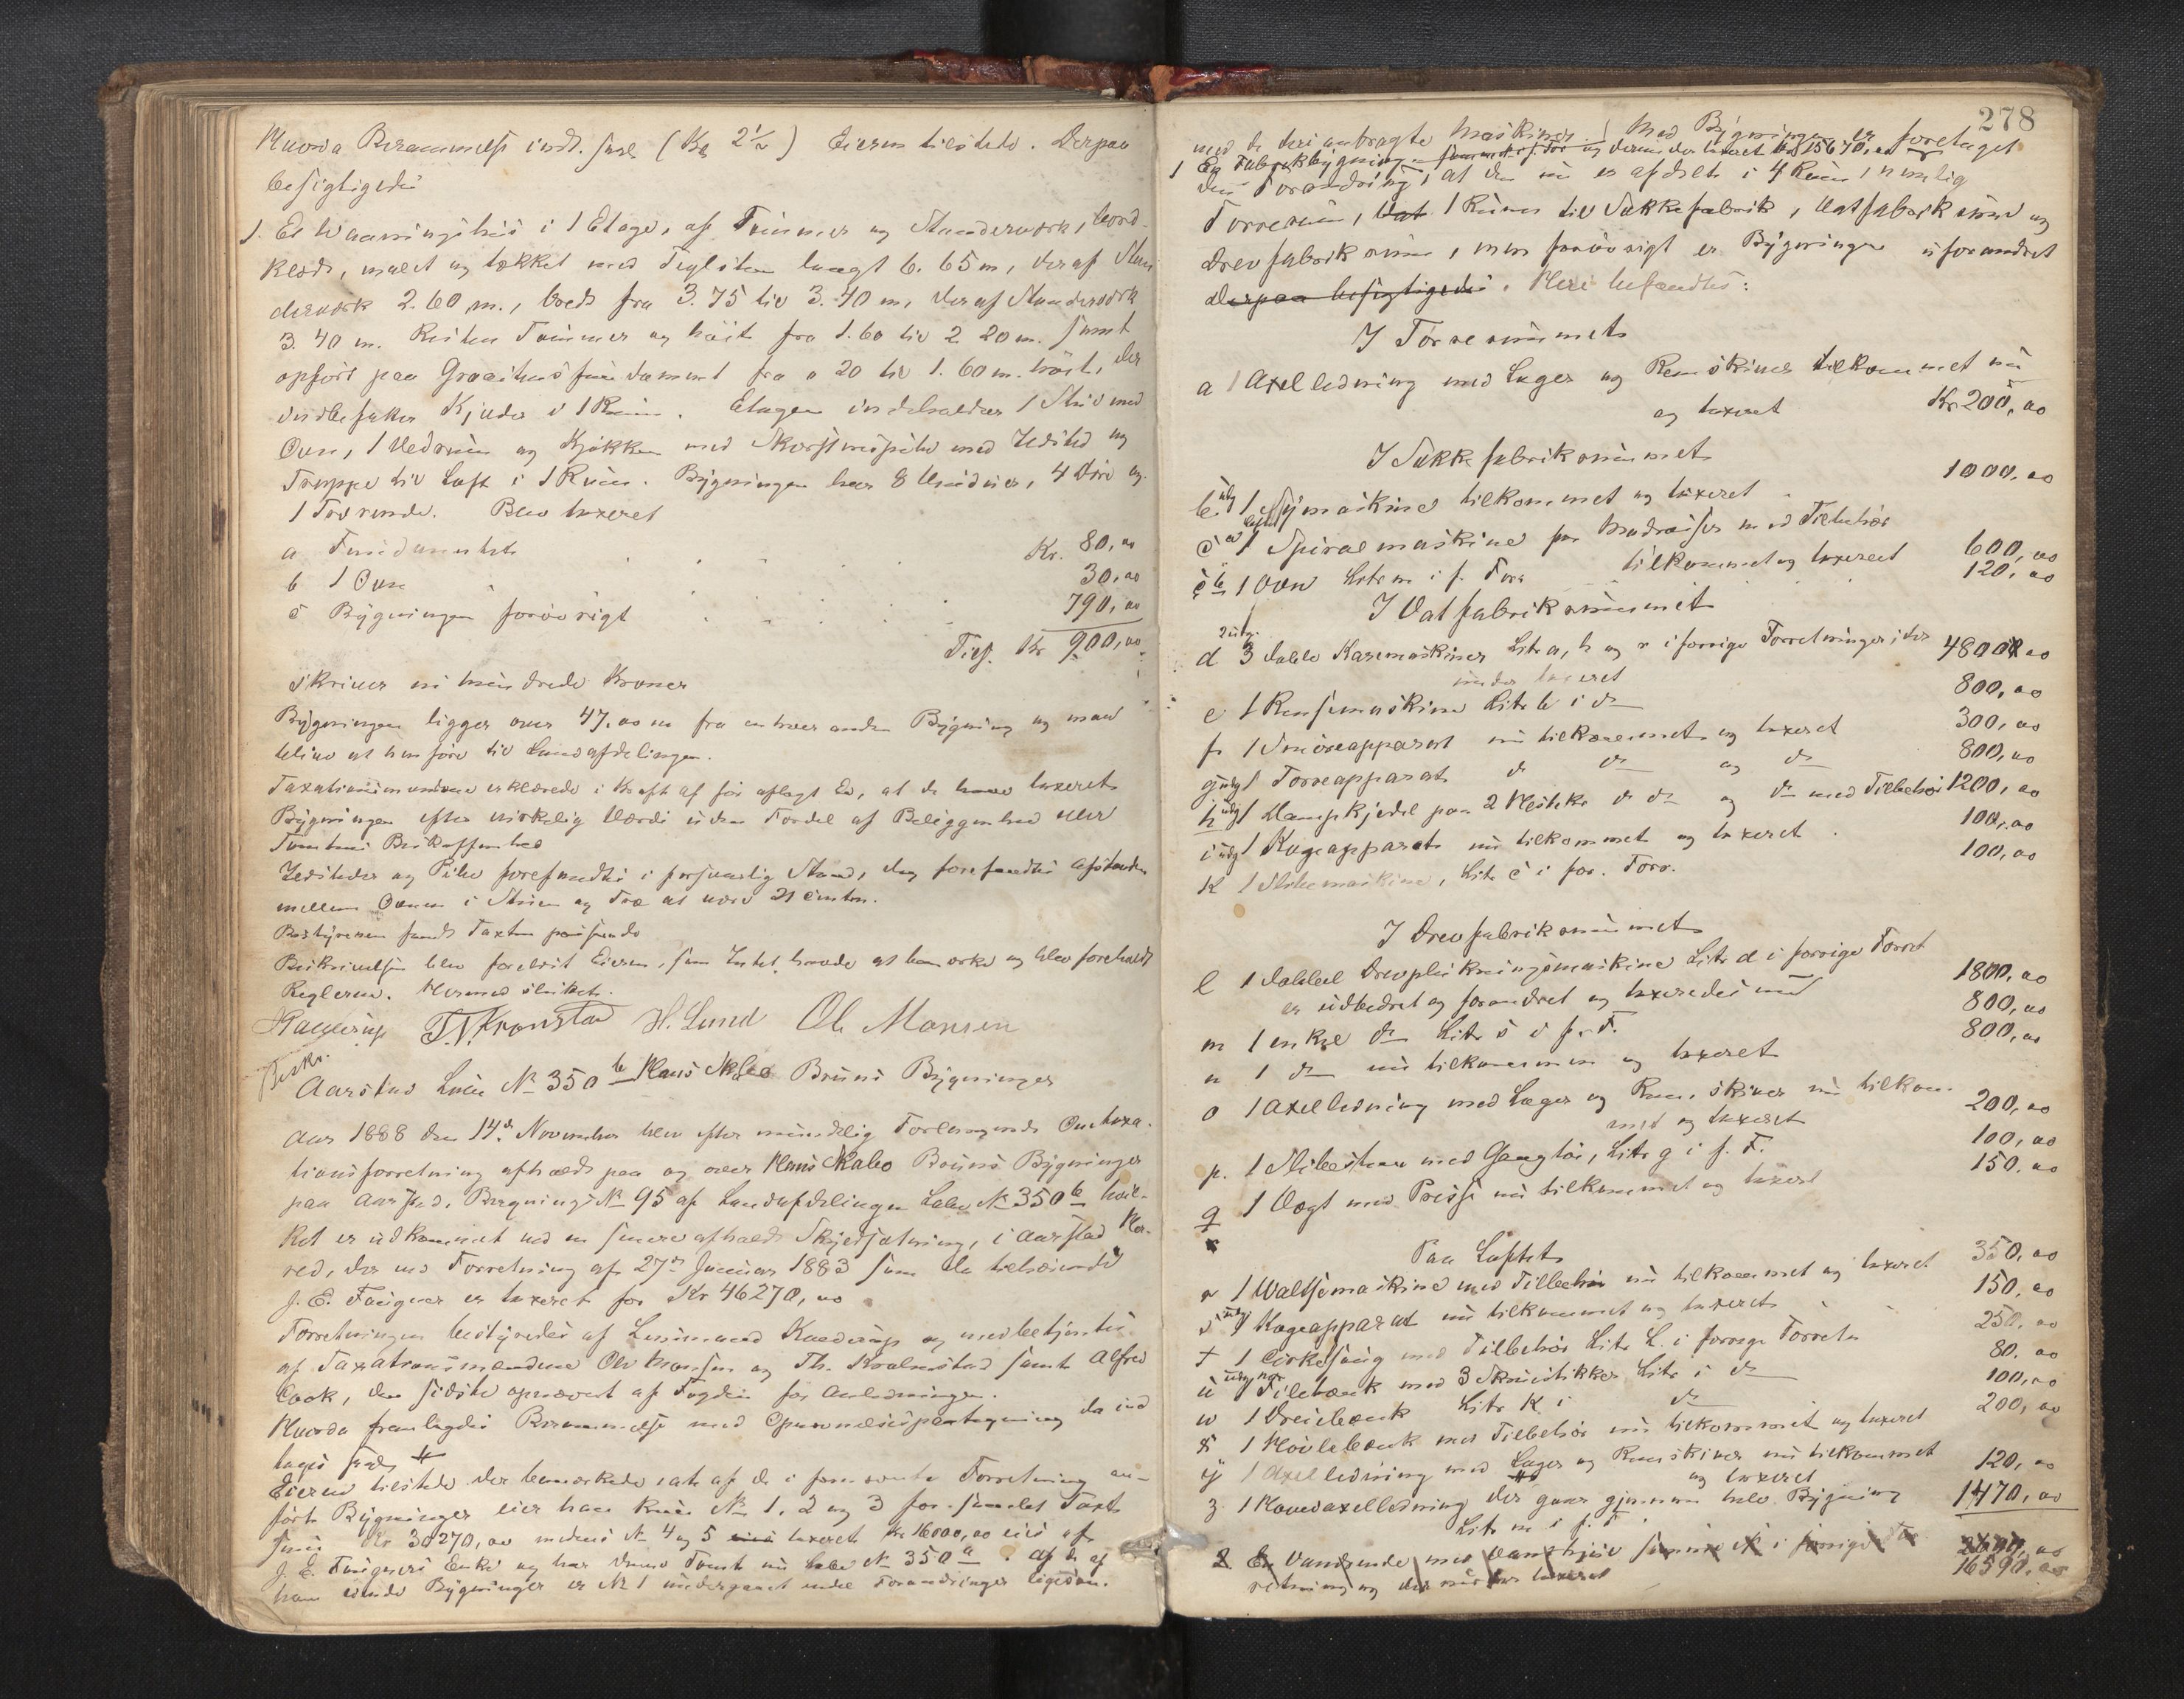 Hvorda Berammelse indt. saal. (Kl 2 1/2) Eieren tilstede. Derpaa
besigtigedes
1. Et Vaaningshus i 1 Etage, af Tømmer og Standerværk, bord-
klædt, malet og tækket med Teglsten langt 6.65 m, deraf Stan
derværk 2.60 m., bredt fra 3.75 til 3.40 m, deraf Standerværk
3.40 m. Resten Tømmer og høit fra 1.60 til 2.20 m. samt
opført paa Graastensfundament fra 0.20 til 1.60 m. høit, der
indbefatter Kjelder i 1 Rum. Etagen indeholder 1 Stue med
Ovn, 1 Vedrum og Kjøkken med Skorstenspibe med Ildsted og
Trappe til Loft i 1 Rum. Bygningen har 8 Vinduer, 4 Døre og
1 Tagrende. Blev taxeret
a Fundamentet Kr. 80,00
b 1 Ovn 30,00
c Bygningen forøvrigt 790,00
Tils. Kr 900,00
skriver ni hundrede Kroner
Bygningen ligger over 47.00 m fra enhver anden Bygning og maa
blive at henføre til Landafdelingen.
Taxationsmændene erklærede i Kraft af før aflagt Ed, at de have taxeret
Bygningen efter virkelig Værdi uden Fordel af Beliggenhed eller
Tomtens Beskaffenhed
Ildsteder og Piber forefandtes i forsvarlig Stand, dog forefandtes Afstanden
mellem Ovnen i Stuen og Træ at være 21 Centm.
Bestyreren fandt Taxten passende
Beskrivelsen blev forelæst Eieren, som Intet havde at bemærke og blev foreholdt
Reglerne. Hermed sluttet.
T. N. Kronstad H. Lund Ole Monsen
Beskr.
Aarstad Løbe № 350 b Hans Mabo Bruns Bygninger
Aar 1888 den 14de November blev efter mundelig Forlangende Omtaxa-
tionsforretning afholdt paa og over Hans Mabo Bruns Bygninger
paa Aarstad, Bygnings № 95 af Landafdelingen Løbe № 350 b hvil-
ket er udkommet ved en senere afholdt Skjelsætning, i Aarstad Her-
red, der ved Forretning af 27de Januar 1883 som da tilhørende
J. E. Faugner er taxeret for Kr 46270,00
Forretningen bestyredes af Lensmand Kaderup og medbetjentes
af Taxationsmændene Ole Monsen og Th. Kvalmstad samt Alfred
Cook, den sidste opnævnt af Fogden for Anledningen.
Hvorda fremlagdes Berammelse med Opnævnelsespaategning da ind
tages saal.
Eieren tilstede der bemærkede at af de i foranstaaende Forretning an-
førte Bygninger eier han kun № 1, 2 og 3 for samlet Taxt
Kr 30270,00 medens № 4 og 5 taxeret Kr 16000,00 eies af
J. E. Faugners Enke og har denne Tomt nu Løbe № 350 a. Af de af
ham eiende Bygninger er № 1 undergaaet endel Forandringer ligesom
278
med de deri anbragte Maskiner. Med Bygningen er foretaget
1 En Fabrikbygning taxeret Kr 15670,00
den Forandring, at den nu er afdelt i 4 Rum, nemlig
Tørrerum, Vat 1 Rum til Sækkefabrik, Vatfabrikrum og
Drevfabrikrum, men forøvrigt er Bygningen uforandret
Derpaa besigtigedes. Heri befandtes:
I Tørrerummet
a 1 Axelledning med Lager og Remskiver tilkommet nu
og taxeret Kr 200,00
I Sækkefabrikrummet
b. udg 1 Symaskine tilkommet og taxeret 1000,00
c 1 Spiralmaskine for Madrasser med Tilbehør
tilkommet og taxeret 600,00
1 Ovn Litr m i f. Forr 120,00
I Vatfabrikrummet
d 3 dobble Karemaskiner Litr a, h og n i forrige Forretninger, der
nu der taxeret 4800,00
e 1 Rensemaskine Litr b i do 800,00
f 1 Smøreapparat nu tilkommet og taxeret 300,00
g udg 1 Tørreapparat do do og do 800,00
h udg 1 Dampkjedel paa 2 Hestekr do do og do med Tilbehør 1200,00
i udg 1 Kogeapparat nu tilkommet og taxeret 100,00
k 1 Slibemaskine, Litr c i for. Forr. 100,00
I Drevfabrikrummet
l 1 dobbel Drevplukningsmaskine Litr d i forrige Forret
er udbedret og forandret og taxeredes nu 1800,00
m 1 enkel do Litr s i f. F. 800,00
n 1 do nu tilkommen og taxeret 800,00
o 1 Axelledning med Lager og Remskiver nu tilkom-
met og taxeret 200,00
p. 1 Slibesten med Gangtøi, Litr g i f. F. 100,00
q 1 Vægt med Presse nu tilkommet og taxeret 150,00
Paa Loftet
r 1 Waltsemaskine med Tilbehør nu tilkommet og taxeret 350,00
s udg 1 Kogeapparat nu tilkommet og taxeret 150,00
t 1 Cirkelsaug med Tilbehør Litr L. i forrige Forretn 250,00
u Filebænk med 3 Skruestikker Litr i do 80,00
w 1 Dreiebænk Litr K i do 100,00
x 1 Høvlebænk med Tilbehør nu tilkommet og taxeret 200,00
y 1 Axelledning med Lager og Remskiver nu tilkommet
og taxeret 120,00
z 1 Hovedaxelledning der gaar gjennem hele Bygning
Litr n i f. F 1470,00
2 En Vandrende med Vandhjul i forrige For
retning og der nu taxeret
16590,00